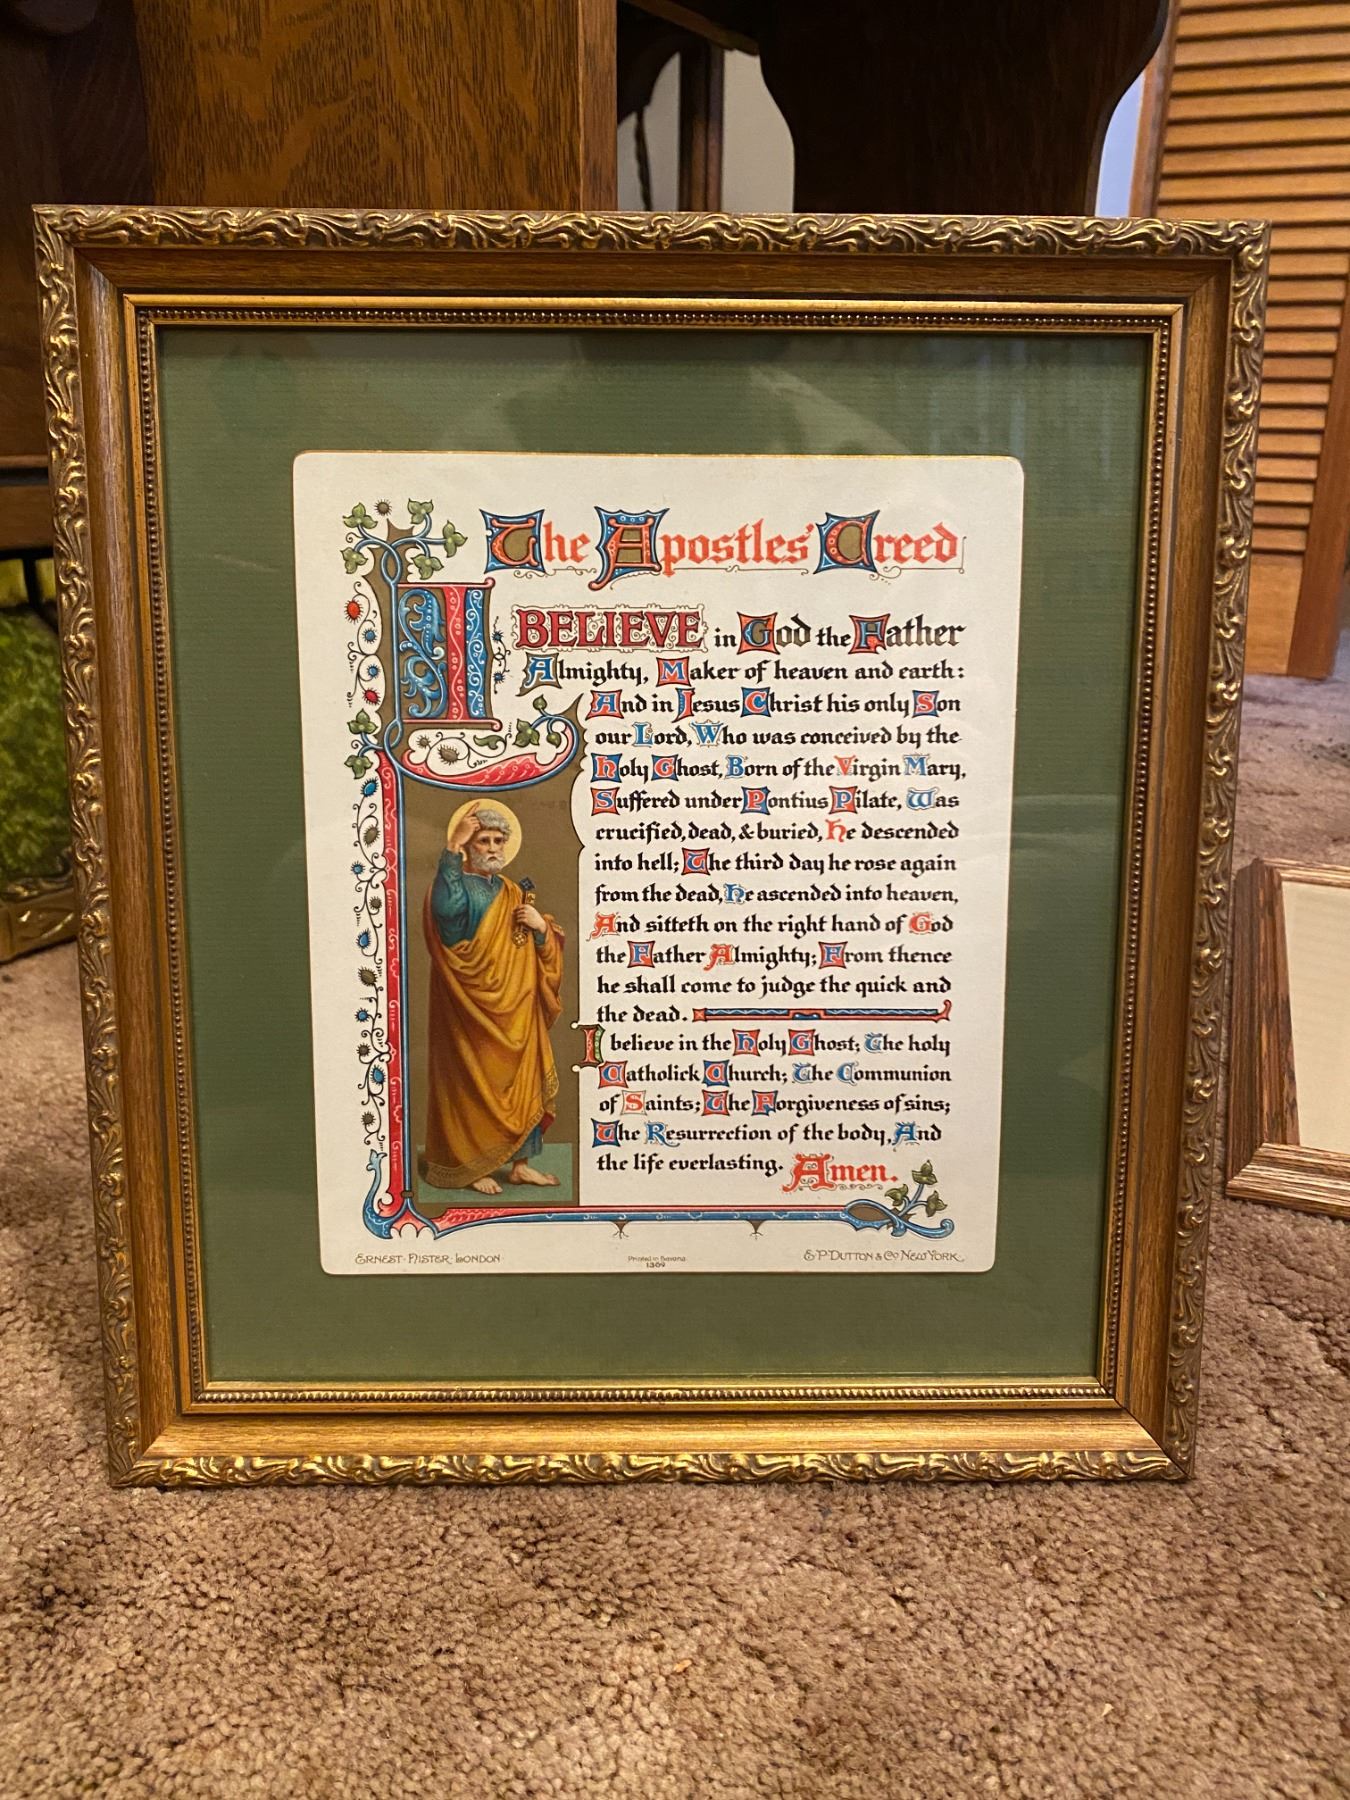 The Apostles' Creed
I BELIEVE in God the Father
Almighty, Maker of heaven and earth:
And in Jesus Christ his only Son
our Lord, Who was conceived by the
Holy Ghost, Born of the Virgin Mary,
Suffered under Pontius Pilate, Was
crucified, dead, & buried, He descended
into hell; The third day he rose again
from the dead, He ascended into heaven,
And sitteth on the right hand of God
the Father Almighty; From thence
he shall come to judge the quick and
the dead.
I believe in the Holy Ghost; The holy
Catholick Church; The Communion
of Saints; The Forgiveness of sins;
The Resurrection of the body, And
the life everlasting. Amen.
ERNEST · NISTER · LONDON
Printed in Bavaria
1369
E·P·DUTTON & Co NEW YORK